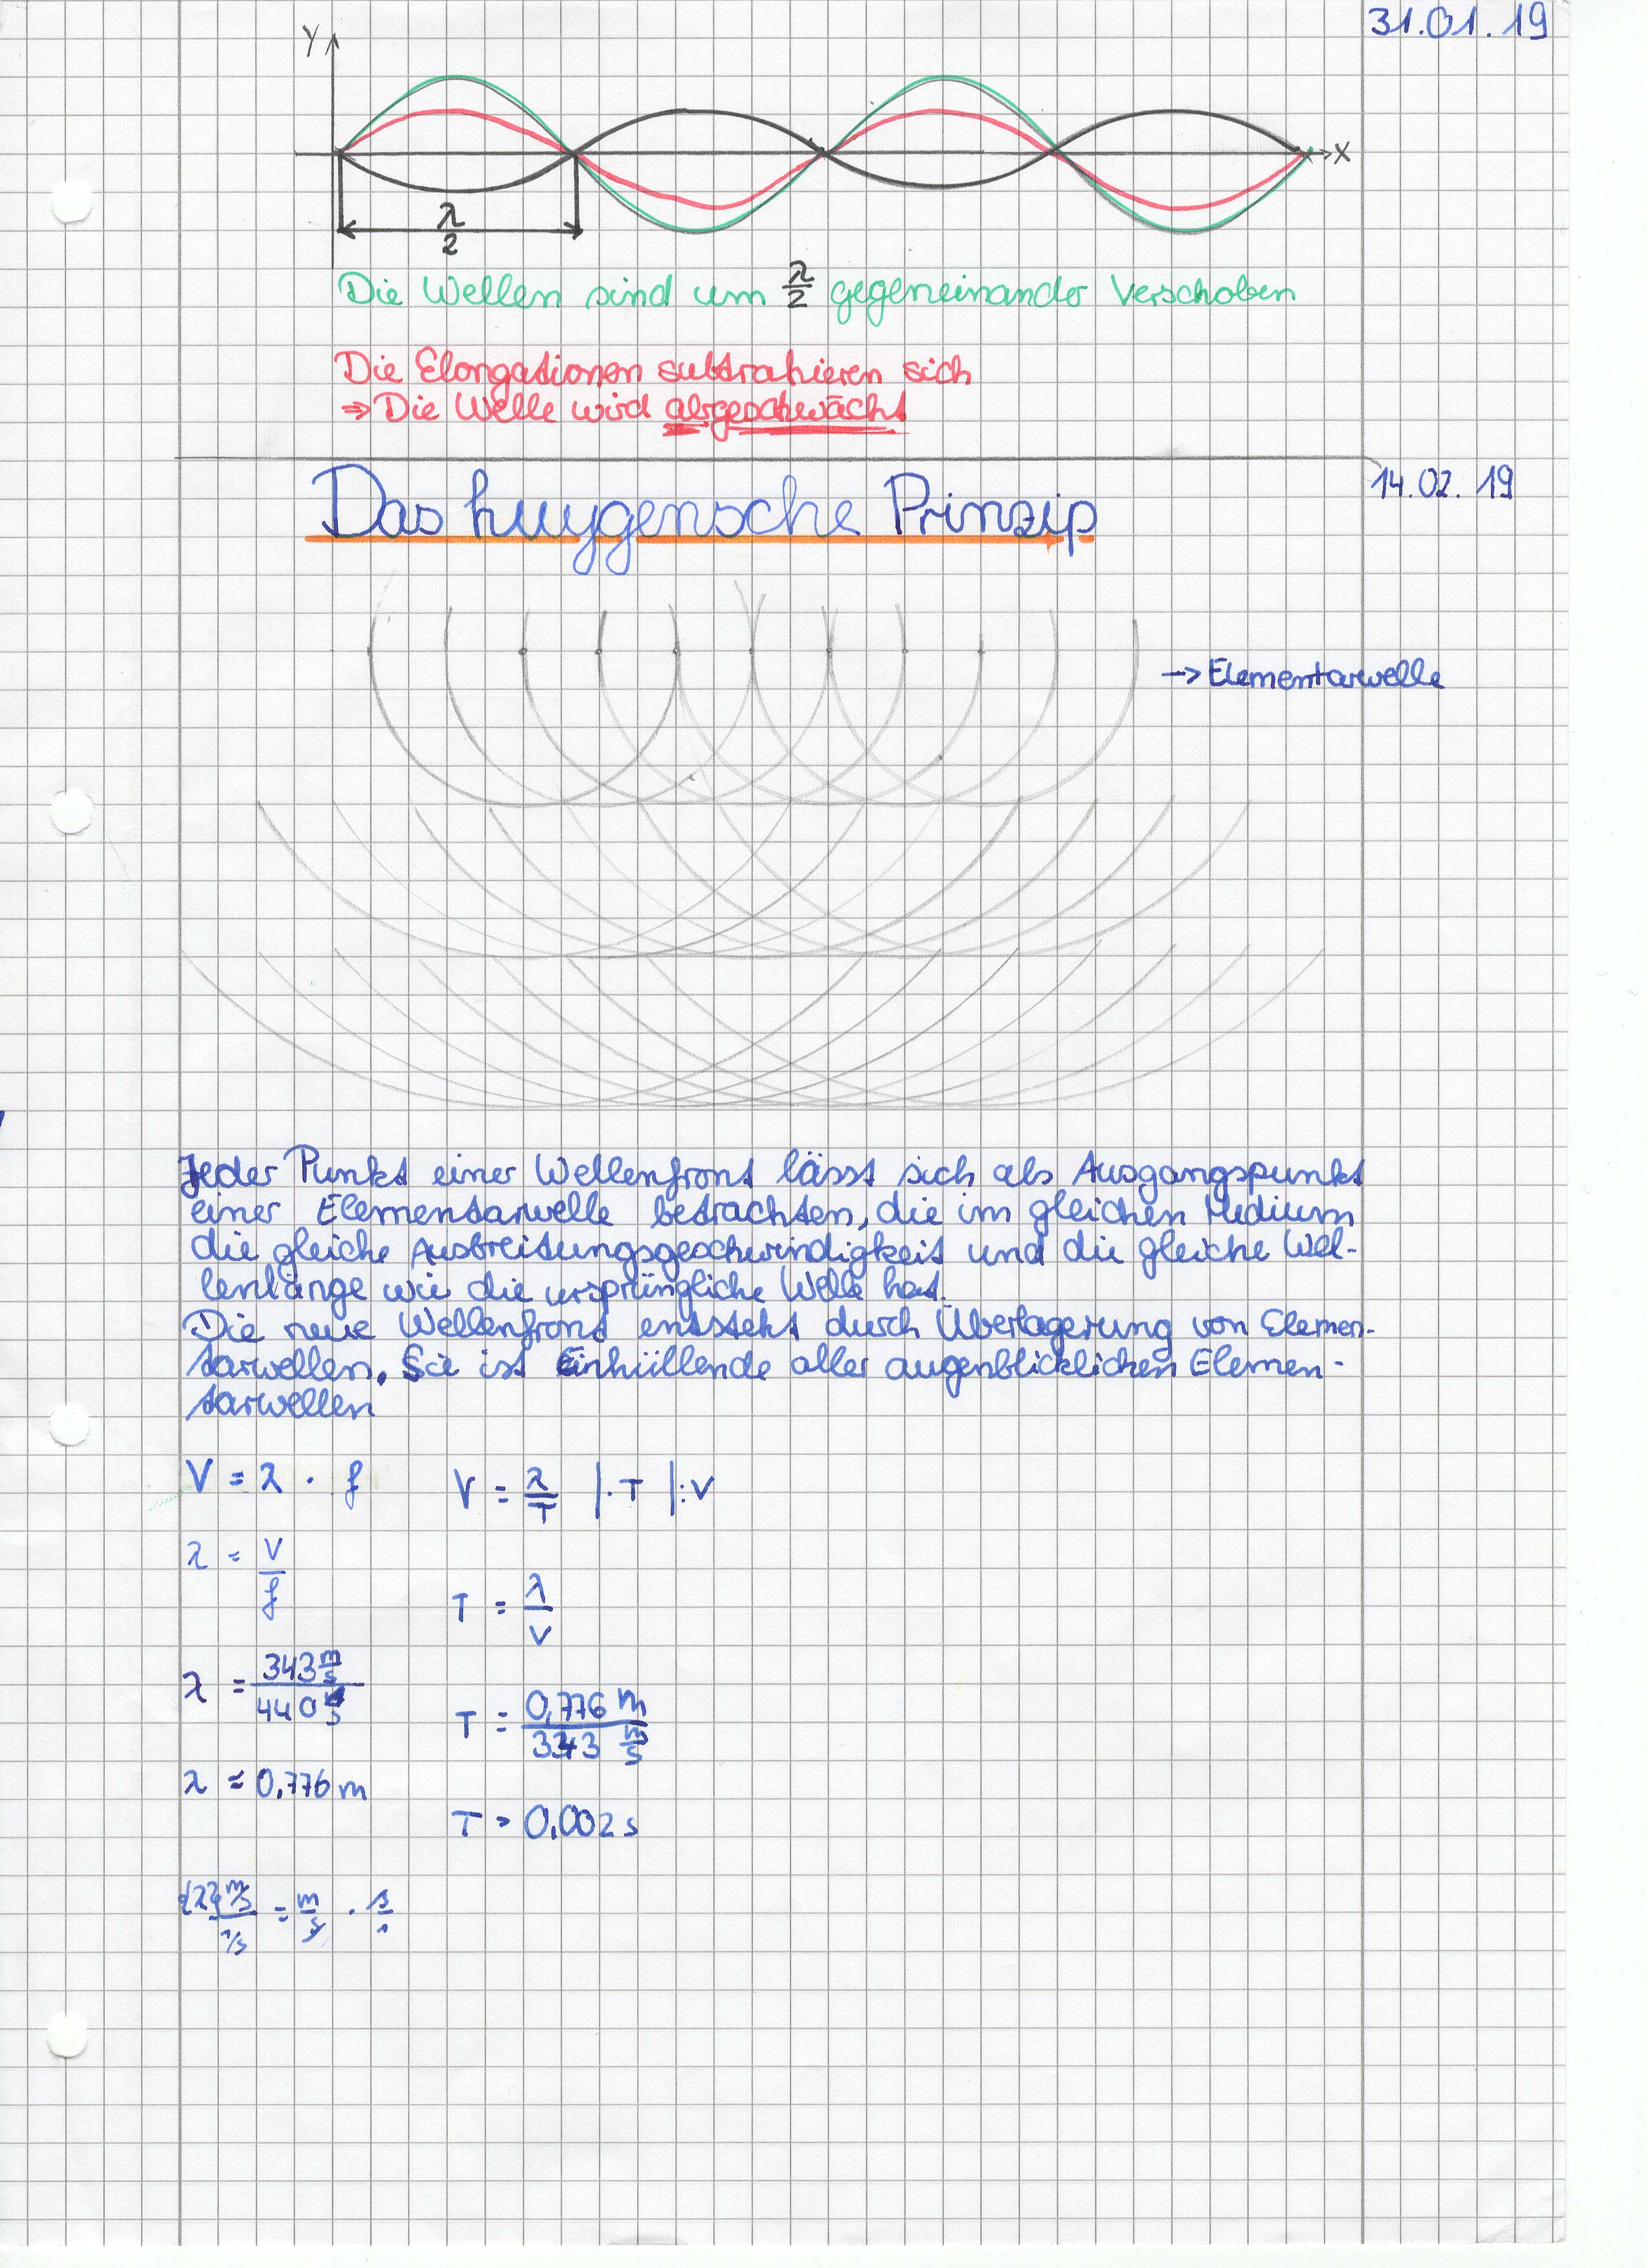 31.01.19
Y
X
λ/2
Die Wellen sind um λ/2 gegeneinander verschoben
Die Elongationen subtrahieren sich
⇒ Die Welle wird abgeschwächt
14.02.19
Das huygensche Prinzip
→ Elementarwelle
Jeder Punkt einer Wellenfront lässt sich als Ausgangspunkt
einer Elementarwelle betrachten, die im gleichen Medium
die gleiche Ausbreitungsgeschwindigkeit und die gleiche Wel-
lenlänge wie die ursprüngliche Welle hat.
Die neue Wellenfront entsteht durch Überlagerung von Elemen-
tarwellen. Sie ist Einhüllende aller augenblicklichen Elemen-
tarwellen
V = λ · f
λ = V/f
λ = 343 m/s / 440
λ ≈ 0,776 m
V = λ/T |·T |:V
T = λ/V
T = 0,776 m / 343 m/s
T = 0,002 s
m/s / 1/s = m/s · s/1